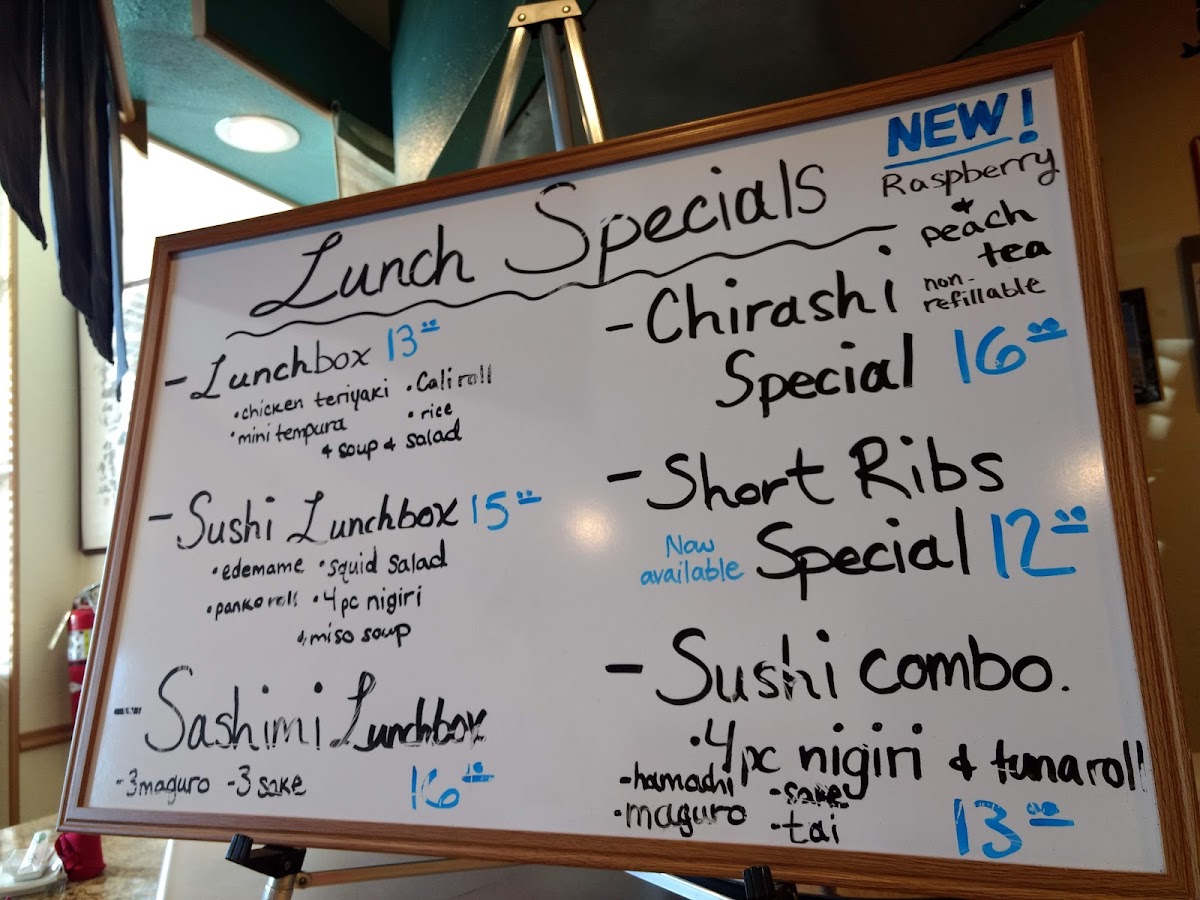 Lunch Specials
NEW!
Raspberry
&
peach
tea
non-
refillable
- Lunchbox 13.00
• chicken teriyaki • Cali roll
• mini tempura • rice
& soup & salad
- Sushi Lunchbox 15.00
• edemame • squid salad
• panko roll • 4 pc nigiri
& miso soup
- Sashimi Lunchbox
- 3 maguro - 3 sake
16.00
- Chirashi
Special 16.00
- Short Ribs
Now
available
Special 12.00
- Sushi combo.
• 4pc nigiri & tuna roll
- hamachi • sake
• maguro - tai
13.00